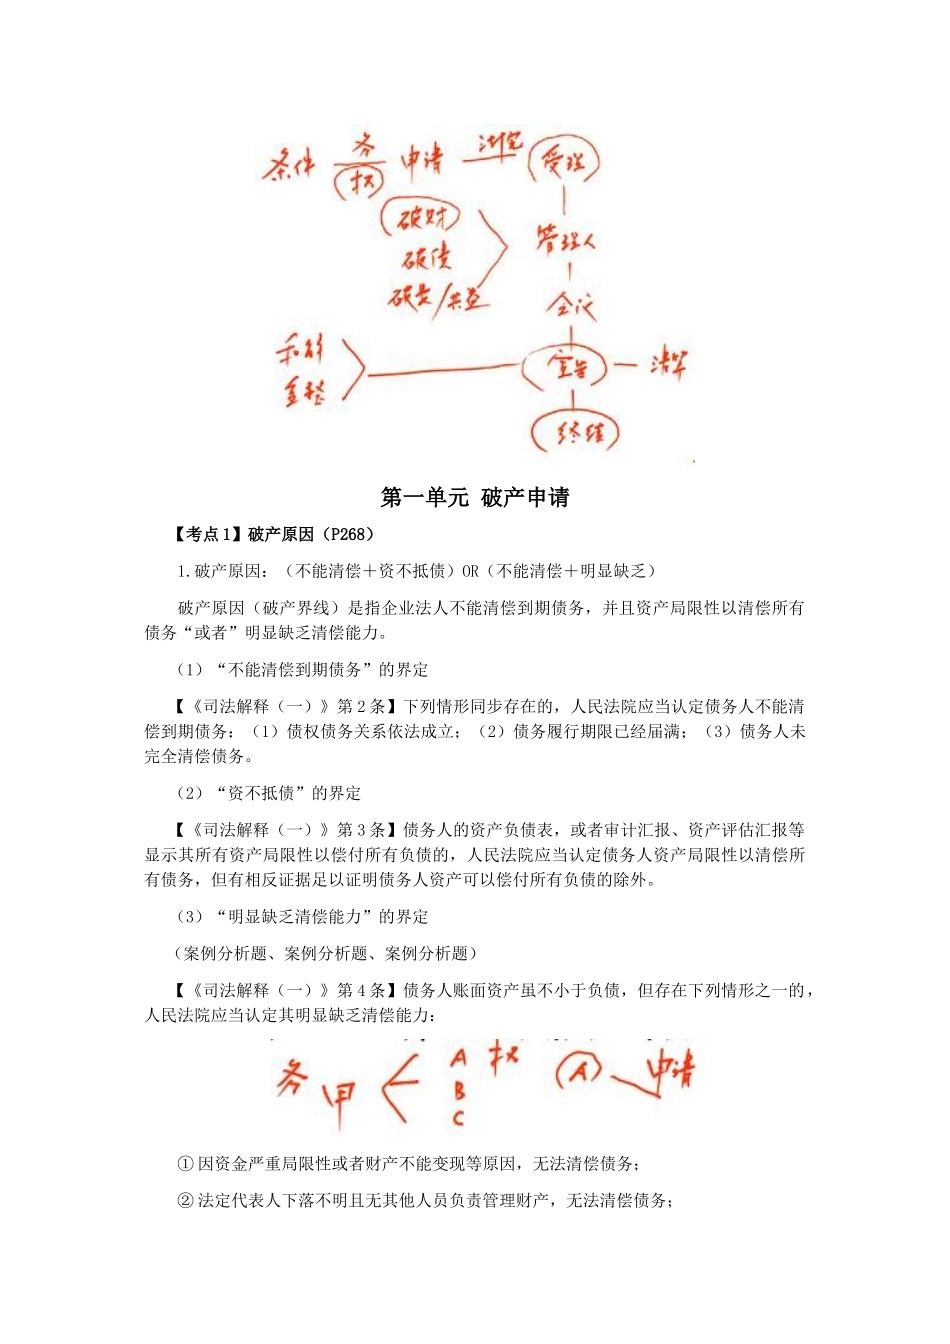 条件 务 申请 法院 受理
权
破财 管理人
破债
破费/共益 会议
和解 宣告 清算
重整
终结
第一单元 破产申请
【考点1】破产原因（P268）
1.破产原因：（不能清偿＋资不抵债）OR（不能清偿＋明显缺乏）
破产原因（破产界线）是指企业法人不能清偿到期债务，并且资产局限性以清偿所有
债务“或者”明显缺乏清偿能力。
（1）“不能清偿到期债务”的界定
【《司法解释（一）》第2条】下列情形同步存在的，人民法院应当认定债务人不能清
偿到期债务：（1）债权债务关系依法成立；（2）债务履行期限已经届满；（3）债务人未
完全清偿债务。
（2）“资不抵债”的界定
【《司法解释（一）》第3条】债务人的资产负债表，或者审计汇报、资产评估汇报等
显示其所有资产局限性以偿付所有负债的，人民法院应当认定债务人资产局限性以清偿所
有债务，但有相反证据足以证明债务人资产可以偿付所有负债的除外。
（3）“明显缺乏清偿能力”的界定
（案例分析题、案例分析题、案例分析题）
【《司法解释（一）》第4条】债务人账面资产虽不小于负债，但存在下列情形之一的，
人民法院应当认定其明显缺乏清偿能力：
务 甲 A 权 A 申请
B
C
①因资金严重局限性或者财产不能变现等原因，无法清偿债务；
②法定代表人下落不明且无其他人员负责管理财产，无法清偿债务；